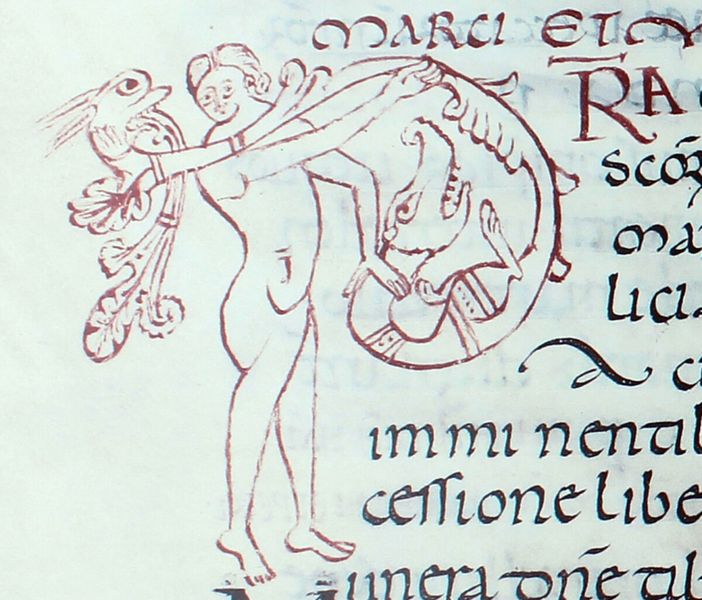 MARCI ET M
RA
scōR
ma
lici.
a ci
imminentib
cessione libe
unera dn̄e tib